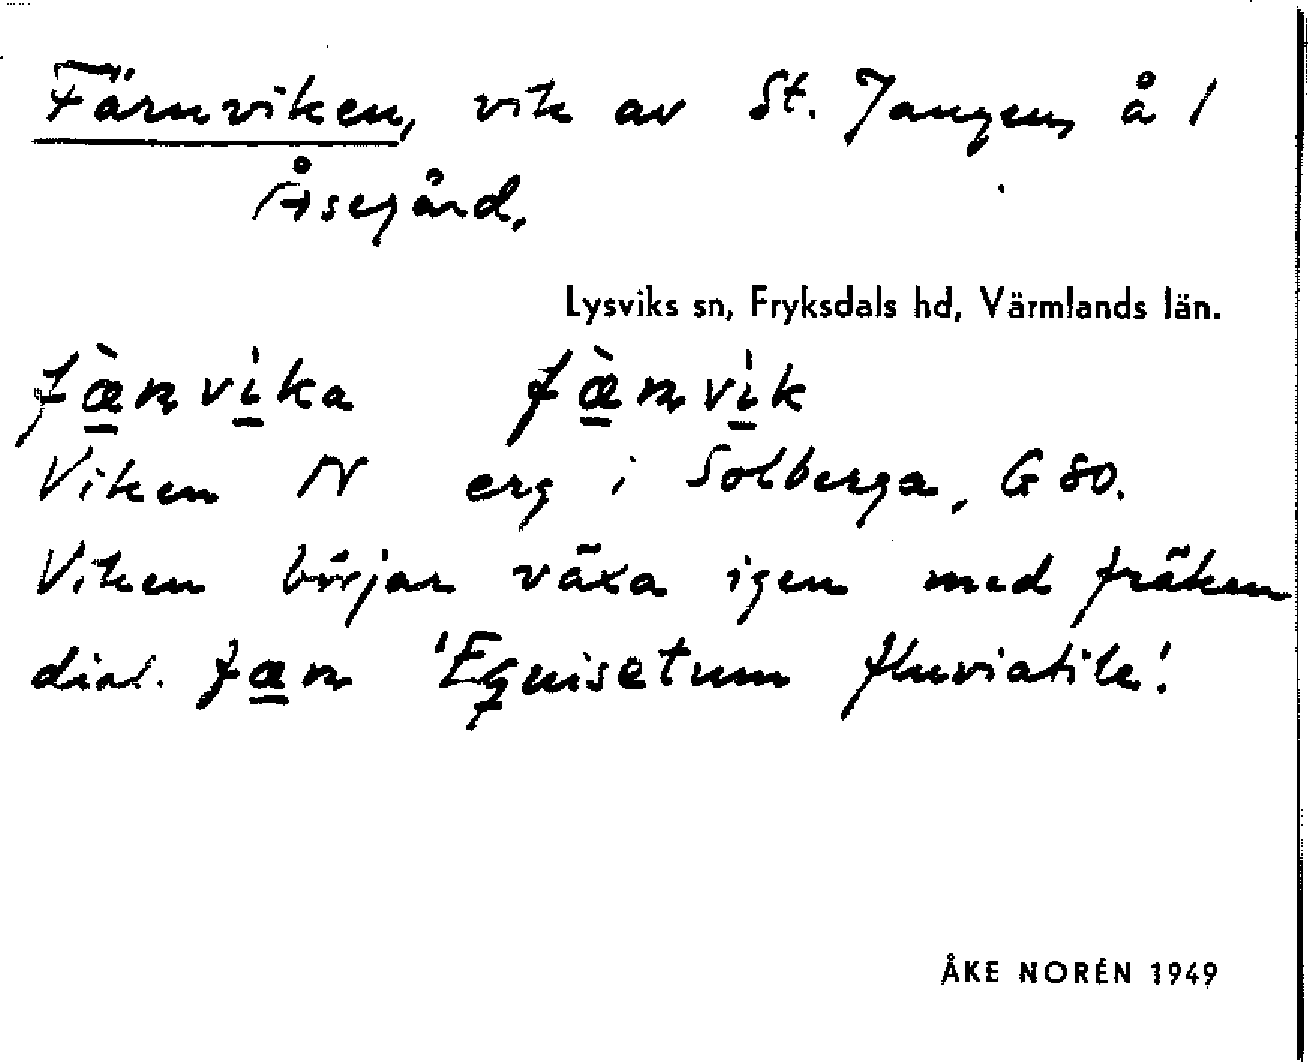 Färnviken, vik av St. Jangen, å 1
Åsegård,
Lysviks sn, Fryksdals hd, Värmlands län.
fæ̀nvìka fæ̀nvìk
Viken N erg i Solberga, G 80.
Viken börjar växa igen med fräken
dial. fæn 'Equisetum fluviatile'.
ÅKE NORÉN 1949